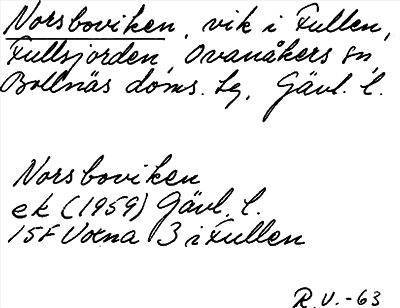 Norsboviken, vik i Fullen,
Fullsjorden, Ovanåkers sn,
Bollnäs doms. Lg, Gävl. l.
Norsboviken
ek (1959) Gävl. l.
15F Voxna 3 i Fullen
R.V.-63